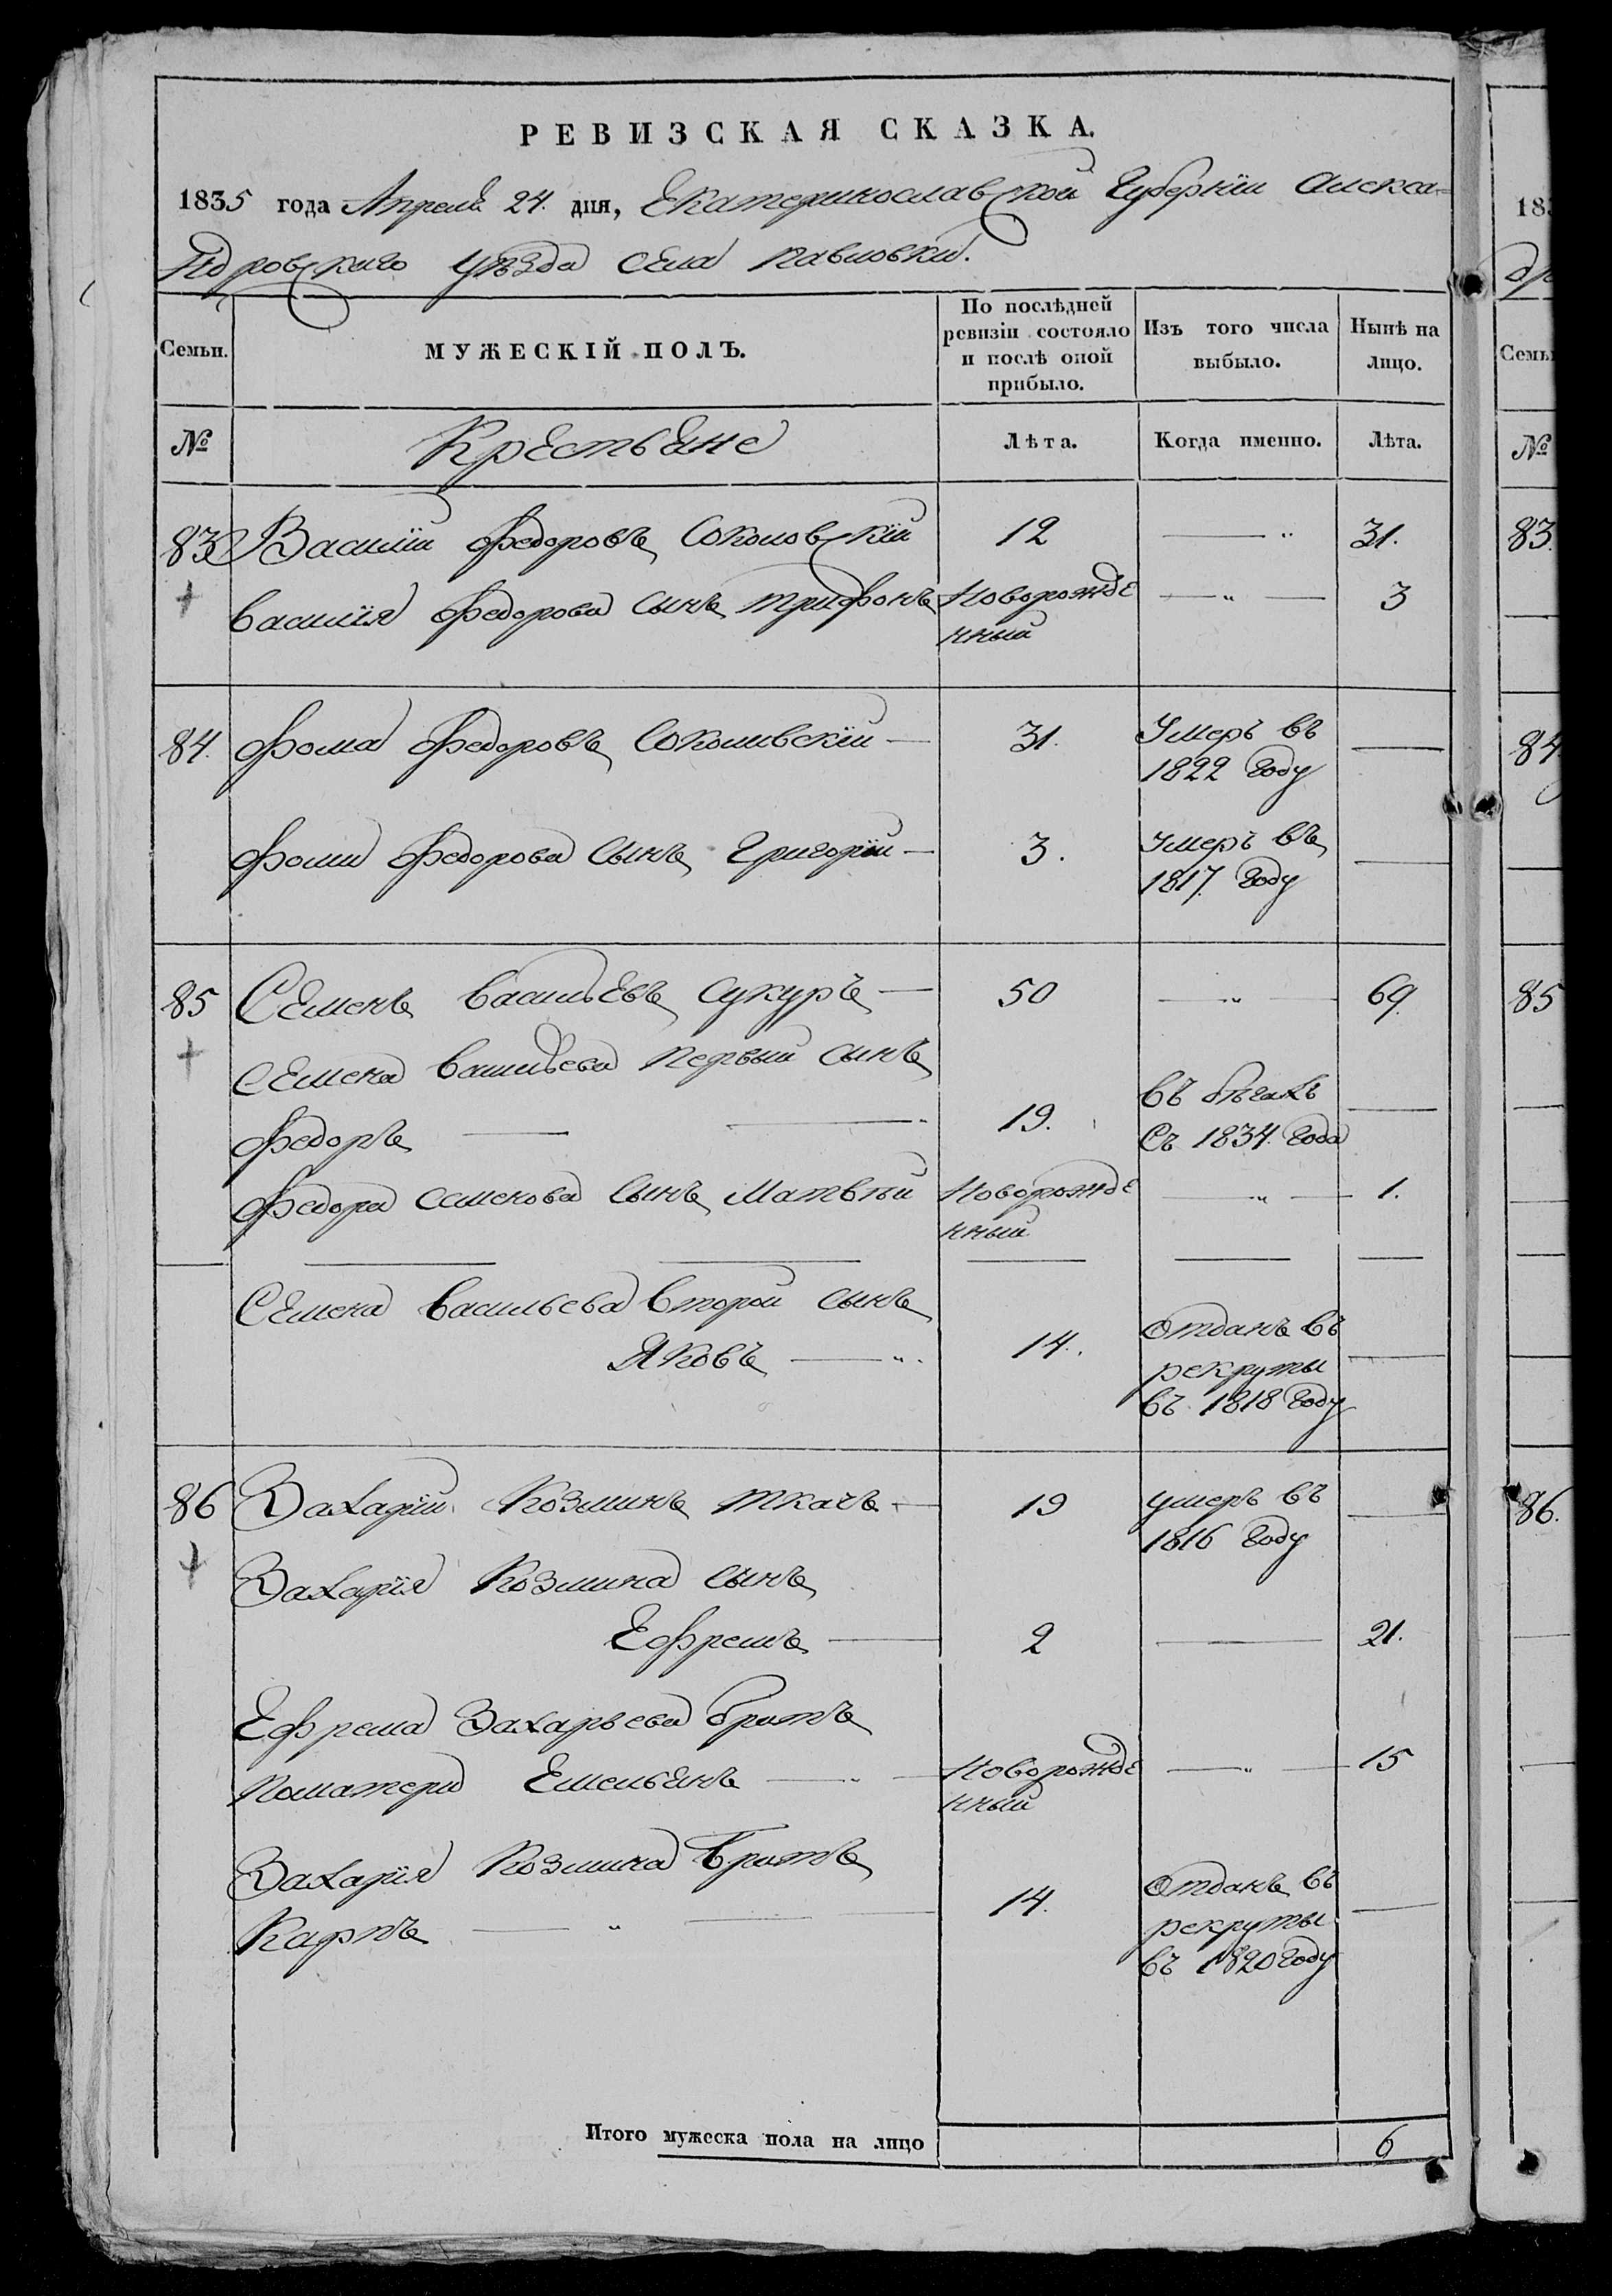 РЕВИЗСКАЯ СКАЗКА.
1835 года Апреля 24. дня, Екатеринославской Губернiи Алекса=
ндровскаго уѣзда села Павловки.
Семьи.
МУЖЕСКIЙ ПОЛЪ.
По послѣдней
ревизiи состояло
и послѣ оной
прибыло.
Изъ того числа
выбыло.
Нынѣ на
лицо.
№
Крестьяне
Лѣта.
Когда именно.
Лѣта.
83 Василiй Федоровъ Соколовскiй 12 31.
Василiя Федорова сынъ Трифонъ Новорожде 3
нный
84. Фома Федоровъ Соколивскiй 31. Умеръ въ
1822 году
Фомы Федорова сынъ Григорiй 3. Умеръ въ
1817 году
85 Семенъ Васильевъ Сукуръ 50 69.
Семена Васильева первый сынъ
Федоръ 19. въ бѣгахъ
съ 1834. года
Федора Семенова сынъ Матвѣй Новорожде 1.
нный
Семена Васильева второй сынъ
Яковъ 14. отданъ въ
рекруты
въ 1818 году
86 Захарiй Козминъ Ткачъ 19 умеръ въ
1816 году
Захарiя Козмина сынъ
Ефремъ 2 21.
Ефрема Захарьева братъ
поматери Емельянъ Новорожде 15
нный
Захарiя Козмина братъ
Карпъ 14. отданъ въ
рекруты
въ 1820 году
Итого мужеска пола на лицо 6
183
др
Семьи
№
83.
84
85
86.